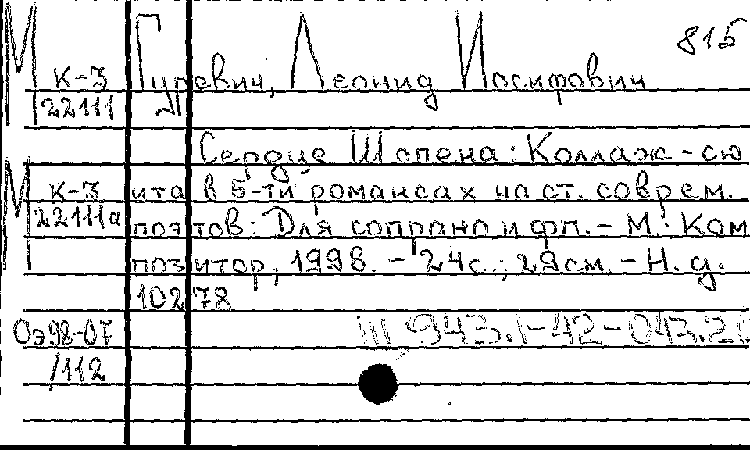 815
М К-3 Гуревич, Леонид Иосифович
22111
Сердце Шопена: Коллаж-сю
М К-3 ита в 5-ти романсах на ст. соврем.
22111а поэтов: Для сопрано и фп. - М.: Ком
позитор, 1998. - 24с.; 29см. - Н. д.
10278
Оэ98-07
/112
Ш 943.1-42-043.2